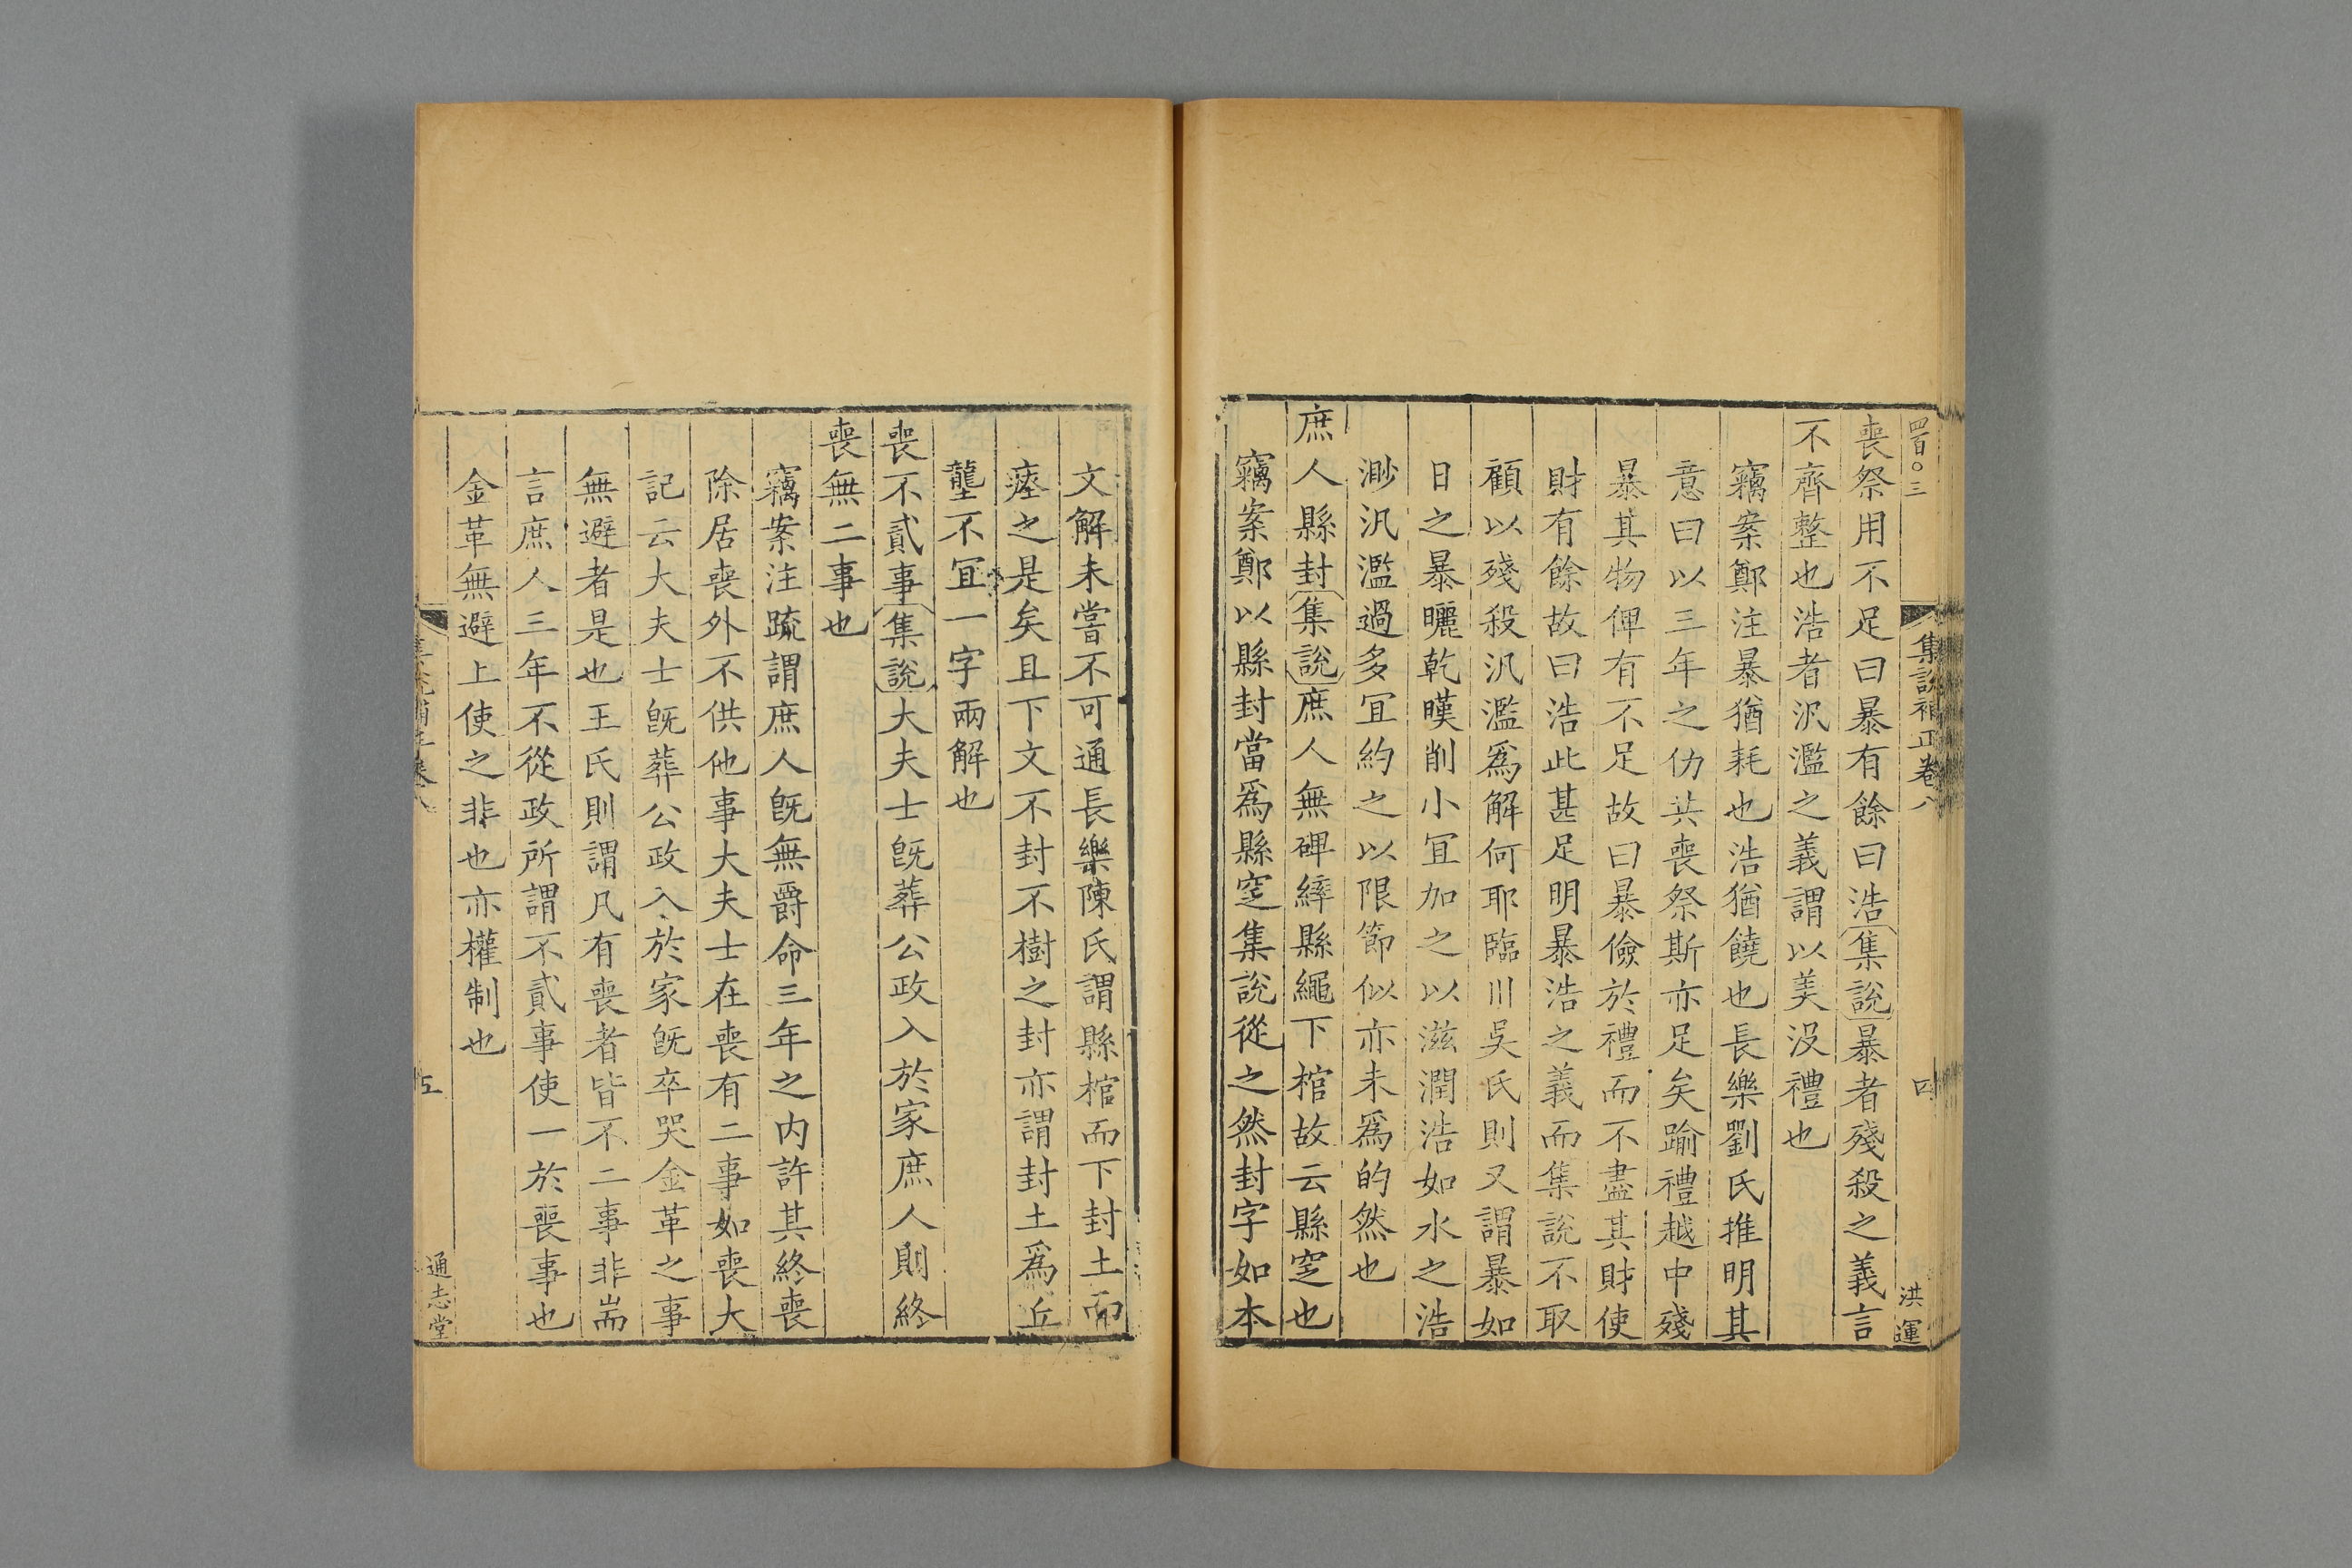 四百〇三
集說補正卷八
四
洪運
喪祭用不足曰暴有餘曰浩集說暴者殘殺之義言
不齊整也浩者汎濫之義謂以美没禮也
竊案鄭注暴猶耗也浩猶饒也長樂劉氏推明其
意曰以三年之仂共喪祭斯亦足矣踰禮越中殘
暴其物俾有不足故曰暴儉於禮而不盡其財使
財有餘故曰浩此甚足明暴浩之義而集說不取
顧以殘殺汎濫爲解何耶臨川吳氏則又謂暴如
日之暴曬乾嘆削小冝加之以滋潤浩如水之浩
渺汎濫過多冝約之以限節似亦未爲的然也
庶人縣封集說庶人無碑繂縣繩下棺故云縣窆也
竊案鄭以縣封當爲縣窆集說從之然封字如本
文解未嘗不可通長樂陳氏謂縣棺而下封土而
瘞之是矣且下文不封不樹之封亦謂封土爲丘
壟不冝一字兩解也
喪不貳事集說大夫士旣葬公政入於家庶人則終
喪無二事也
竊案注疏謂庶人旣無爵命三年之内許其終喪
除居喪外不供他事大夫士在喪有二事如喪大
記云大夫士旣葬公政入於家旣卒哭金革之事
無避者是也王氏則謂凡有喪者皆不二事非耑
言庶人三年不從政所謂不貳事使一於喪事也
金革無避上使之非也亦權制也
集說補正卷八
五
通志堂